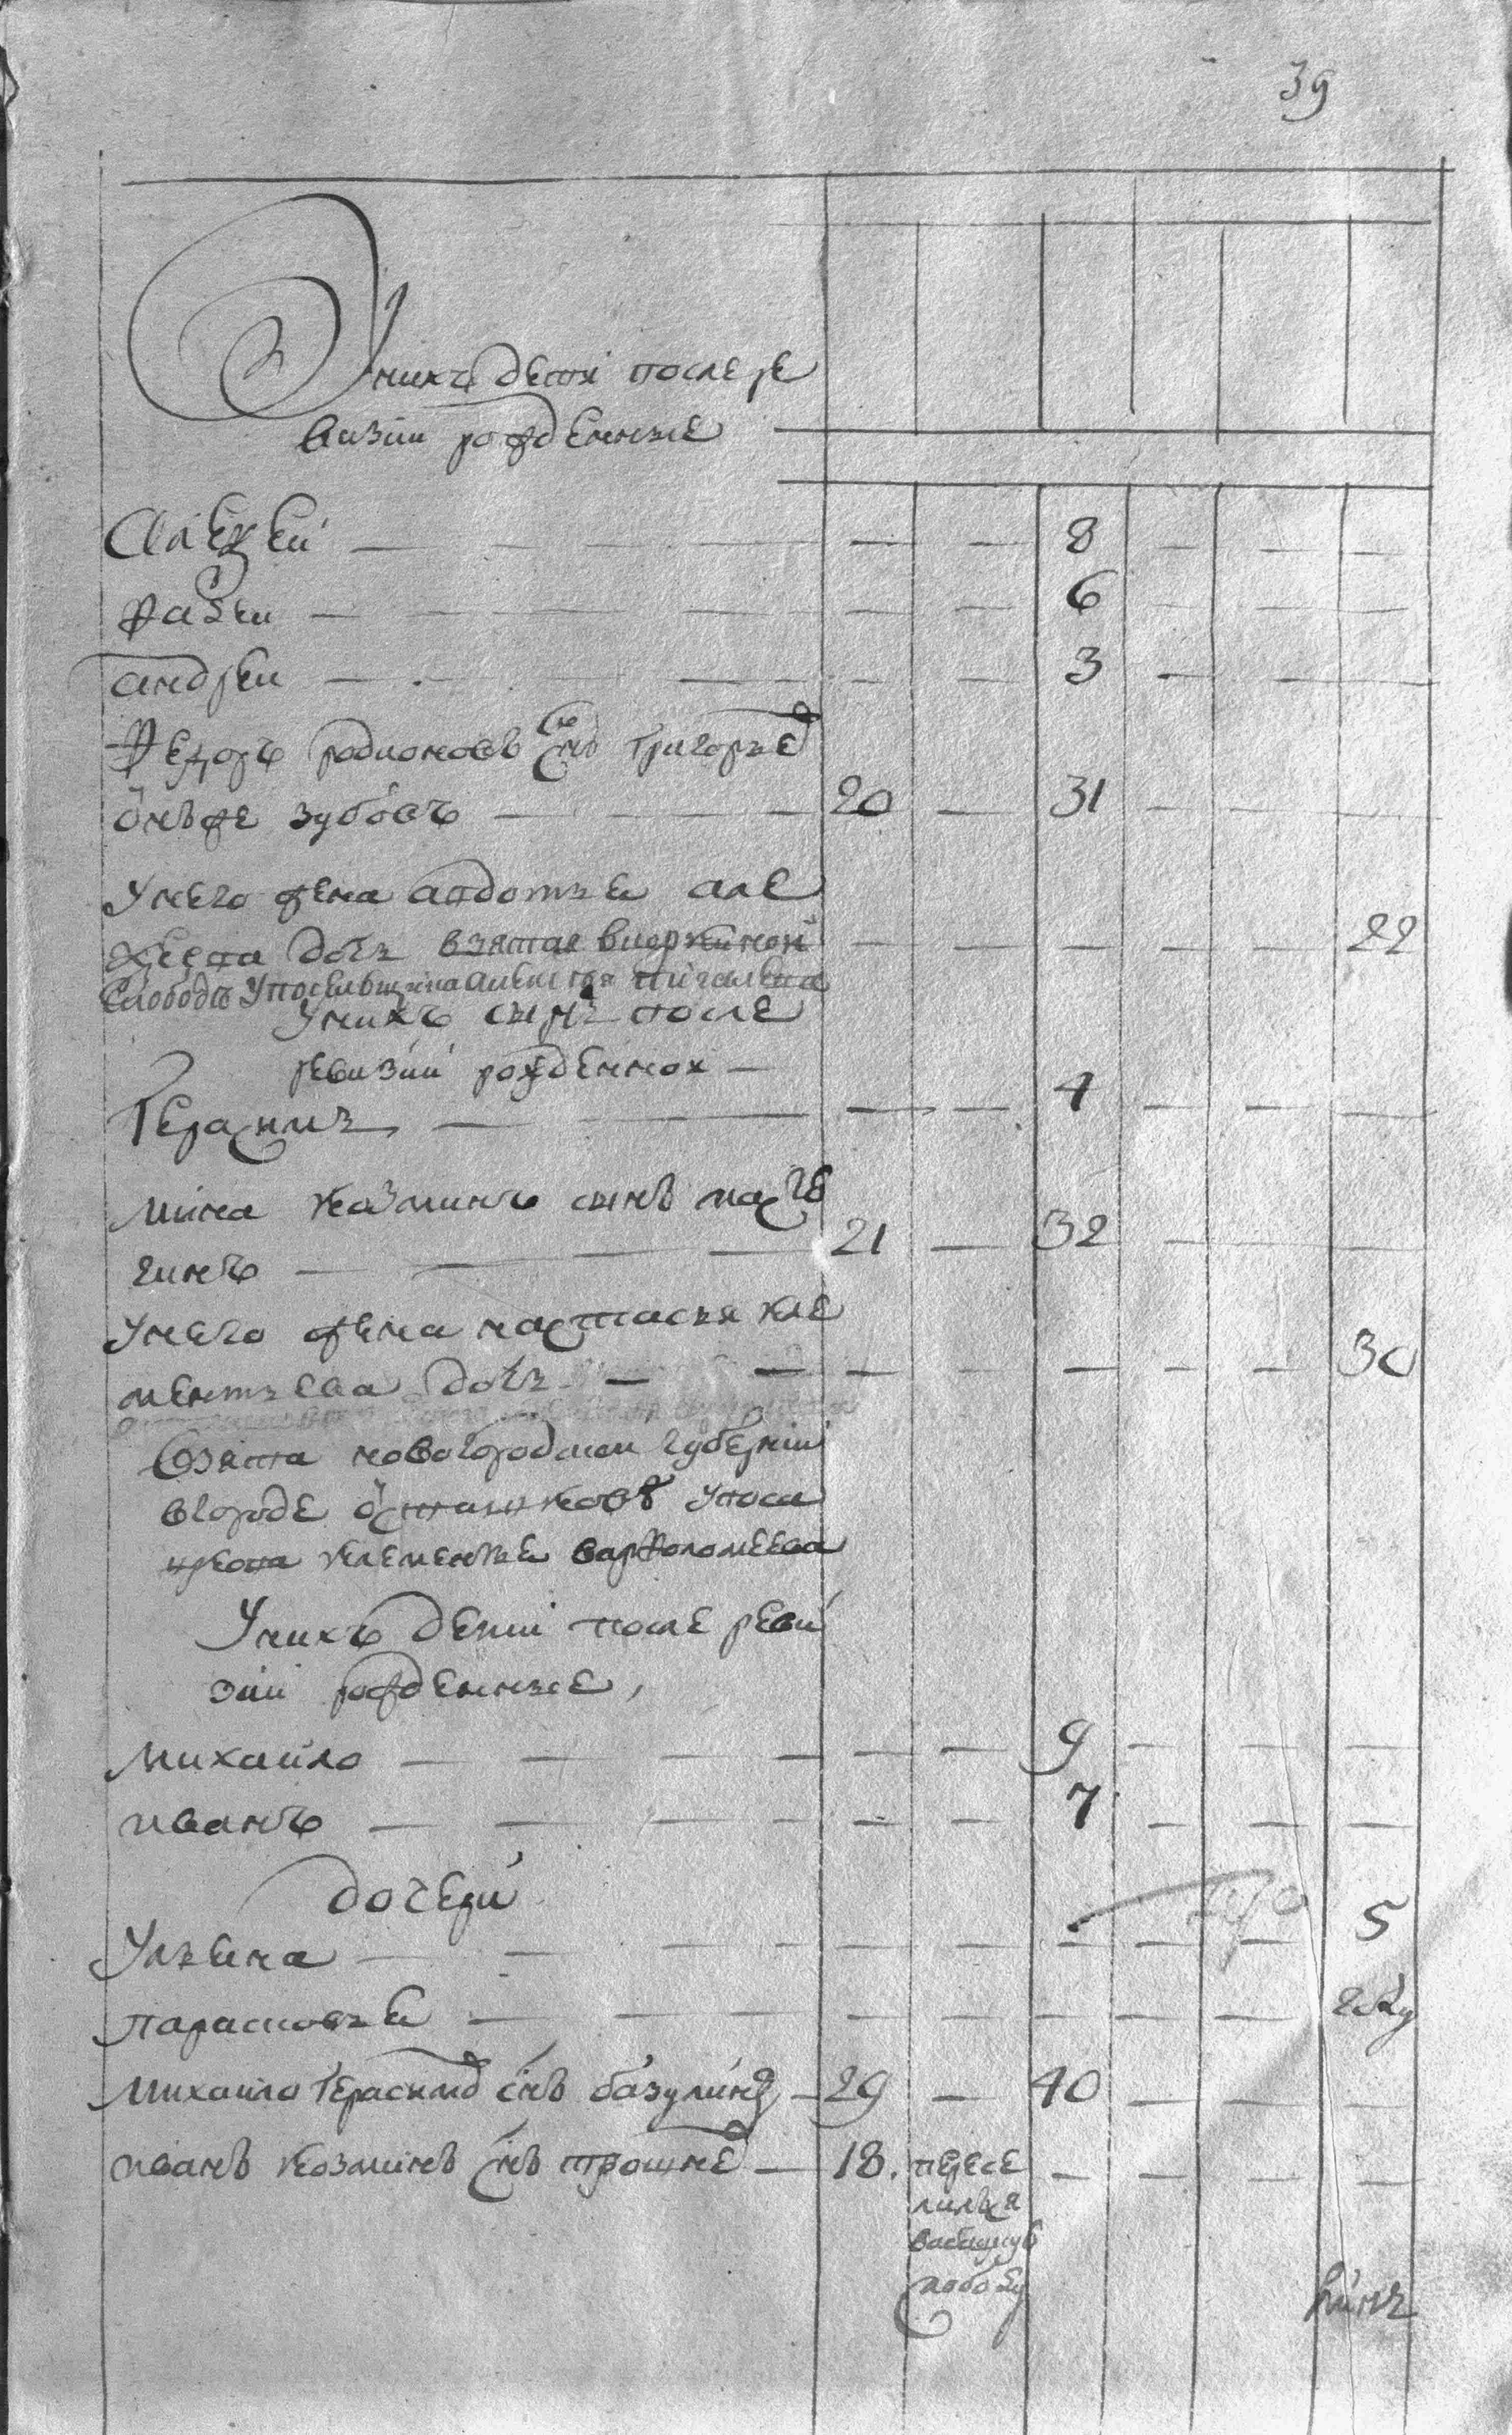 39
У нихъ дети после ре
визии рожденные
Алексеи — — — 8
Фадеи — — — 6
андреи — — — 3
Федоръ родионовъ снъ григорьев
онъ же зубовъ — 20 — 31
У него жена авдотья але
ксеева дочь взятая
Слободе — 22
У нихъ сынъ после
ревизии рожденнои —
Герасимъ — — — 4
мина козминъ сынъ
чинъ — 21 — 32
У него жена настасья кле
ментьева дочь — — 30
Взята новогородцкои губернии
вгороде осташкове упоса
цкова клементья варфоломеева
У нихъ дети после реви
зии рожденные,
михаило — — — 9
иванъ — — — 7
дочери
Ульяна — — — 5
парасковья — — — 2 году
михаило герасимов снъ базулинъ — 29 — 40
иванъ козминъ снъ трошнев — 18. пересе
лился
слободу